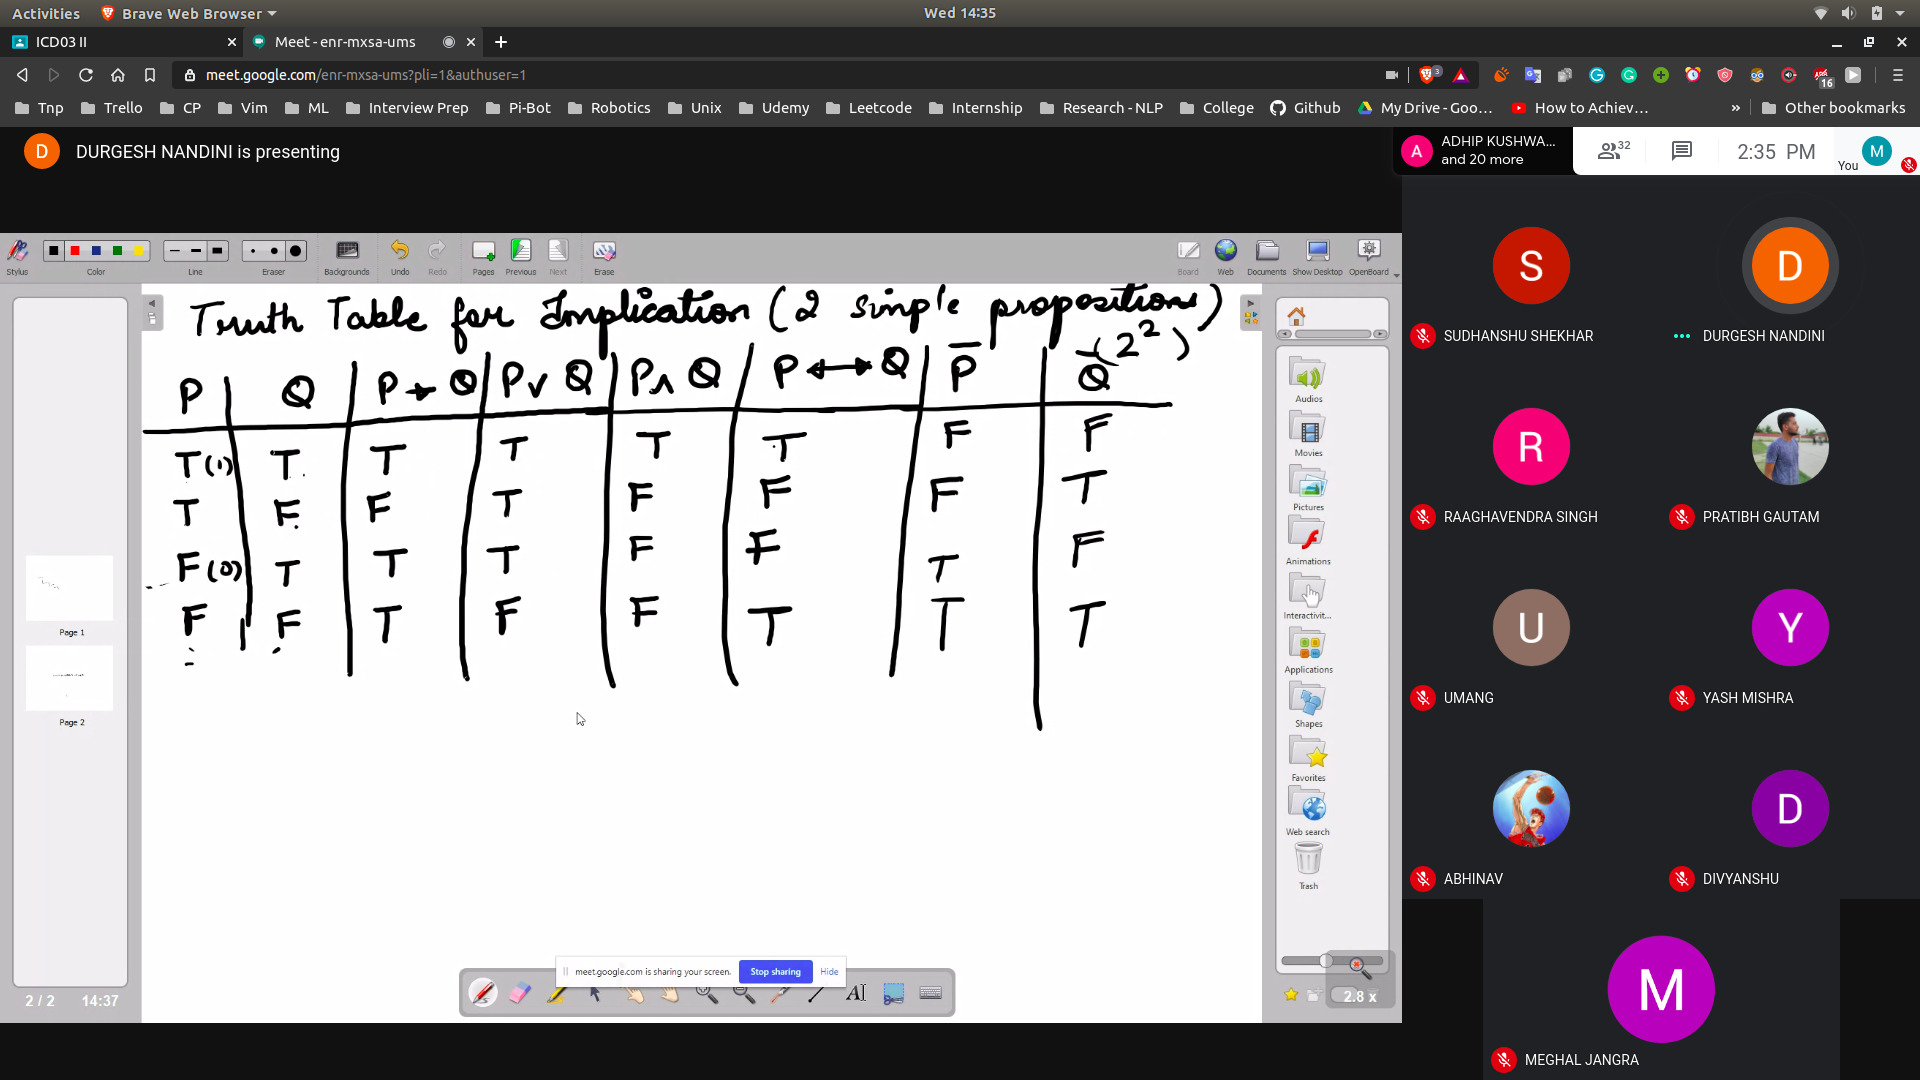 Activities Brave Web Browser Wed 14:35
ICD03 II Meet - enr-mxsa-ums
meet.google.com/enr-mxsa-ums?pli=1&authuser=1 3 16
Tnp Trello CP Vim ML Interview Prep Pi-Bot Robotics Unix Udemy Leetcode Internship Research - NLP College Github My Drive - Goo... How to Achiev... » Other bookmarks
D DURGESH NANDINI is presenting
A ADHIP KUSHWA... and 20 more 32 2:35 PM You M
Stylus Color Line Eraser Backgrounds Undo Redo Pages Previous Next Erase Board Web Documents Show Desktop OpenBoard
Truth Table for Implication (2 simple propositions)
(2²)
P Q P → Q P ∨ Q P ∧ Q P ↔ Q P̅ Q̅
T(1) T T T T T F F
T F F T F F F T
F(0) T T T F F T F
F F T F F T T T
Page 1
Page 2
2 / 2 14:37
Audios
Movies
Pictures
Animations
Interactivit...
Applications
Shapes
Favorites
Web search
Trash
2.8 x
meet.google.com is sharing your screen. Stop sharing Hide
S SUDHANSHU SHEKHAR
D DURGESH NANDINI
R RAAGHAVENDRA SINGH
PRATIBH GAUTAM
U UMANG
Y YASH MISHRA
ABHINAV
D DIVYANSHU
M MEGHAL JANGRA